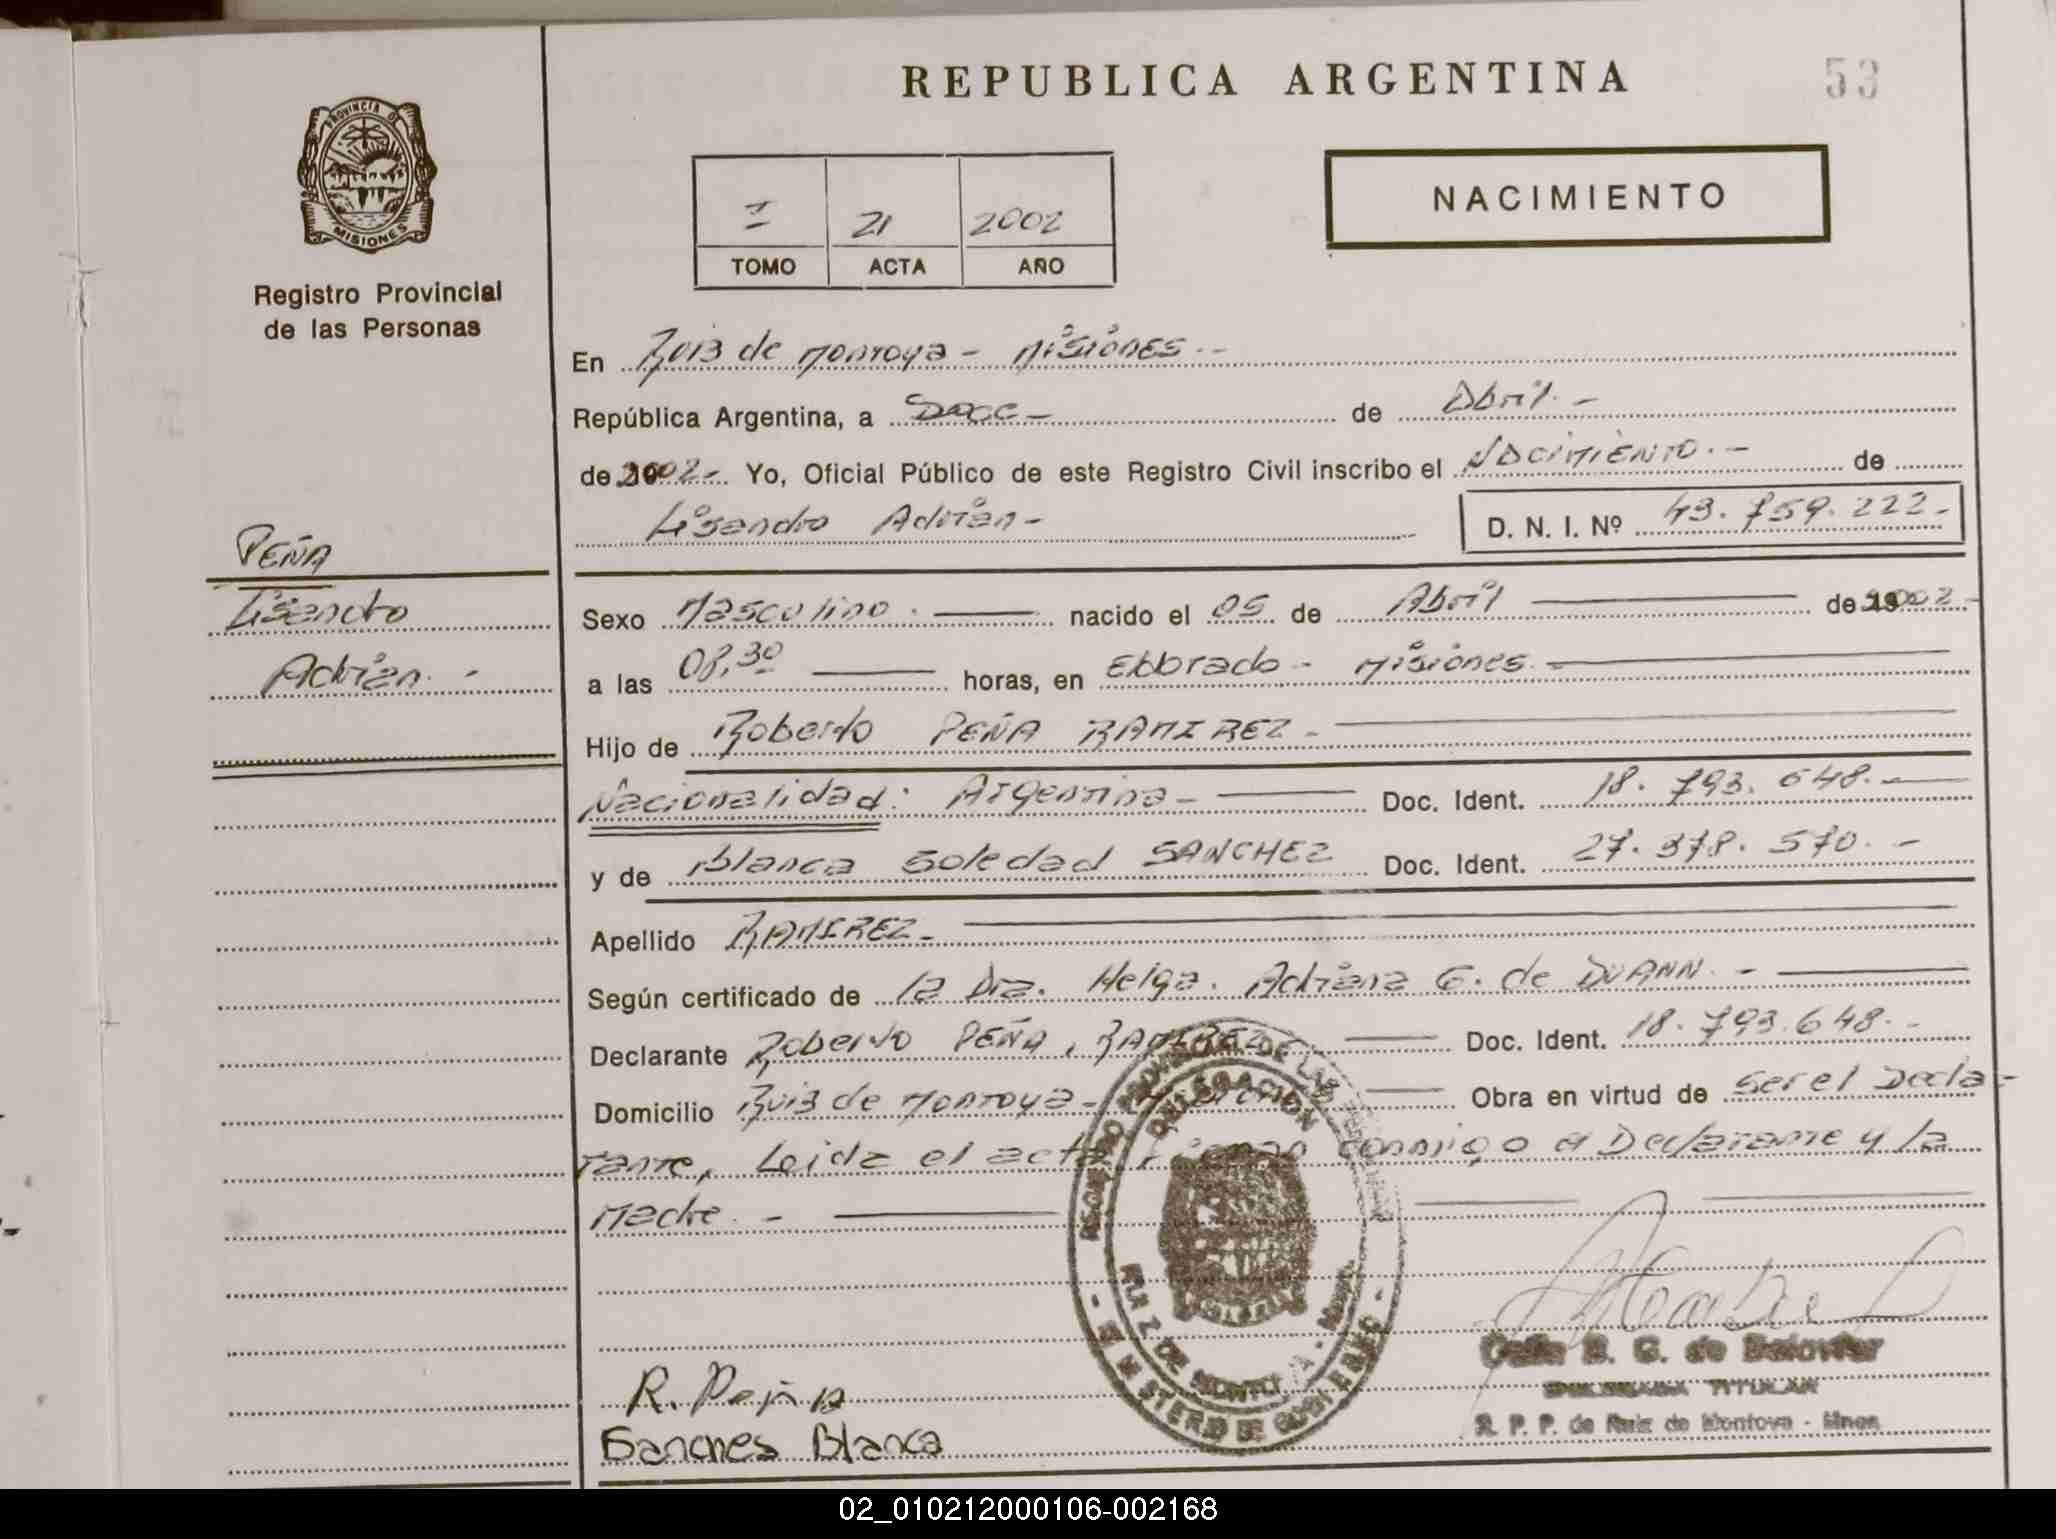 REPUBLICA ARGENTINA
53
PROVINCIA DE
MISIONES
Registro Provincial
de las Personas
NACIMIENTO
I 21 2002
TOMO ACTA AÑO
En Ruiz de Montoya - Misiones.-
República Argentina, a Doce- de Abril.-
de 2002.- Yo, Oficial Público de este Registro Civil inscribo el Nacimiento.- de
Lisandro Adrian- D. N. I. Nº 43.759.222-
PEÑA
Lisandro
Adrian.-
Sexo Masculino. nacido el 05 de Abril de 2002-
a las 08,30 horas, en Eldorado - Misiones.
Hijo de Roberto PEÑA RAMIREZ-
Nacionalidad: Argentina- Doc. Ident. 18.793.648.-
y de Blanca Soledad SANCHEZ Doc. Ident. 27.378.570.-
Apellido RAMIREZ-
Según certificado de la Dra. Helga. Adriana G. de DUANN.-
Declarante Roberto PEÑA, RAMIREZ Doc. Ident. 18.793.648.-
Domicilio Ruiz de Montoya- Obra en virtud de ser el Decla-
rante, Leida el acta, firman conmigo el Declarante y la
Madre.-
REGISTRO PROVINCIAL DE LAS PERSONAS
DELEGACION
RUIZ DE MONTOYA - Mnes.
- MINISTERIO DE GOBIERNO -
R. Peña
Sanches Blanca
B. G. de
DELEGADA TITULAR
R. P. P. de Ruiz de Montoya - Mnes.
02_010212000106-002168